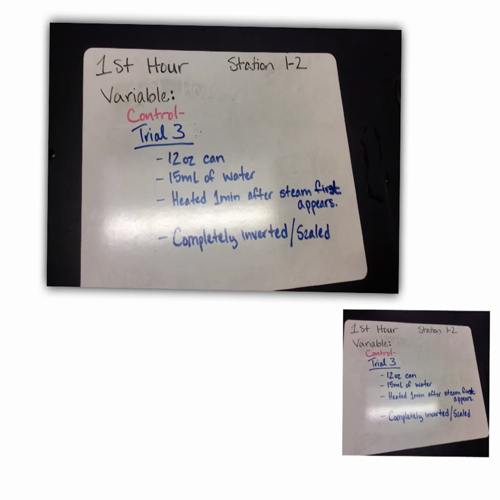 1st Hour Station 1-2
Variable:
Control-
Trial 3
- 12oz can
- 15mL of water
- Heated 1min after steam first
appears.
- Completely inverted/Sealed
1st Hour Station 1-2
Variable:
Control-
Trial 3
- 12oz can
- 15mL of water
- Heated 1min after steam first
appears.
- Completely inverted/Sealed